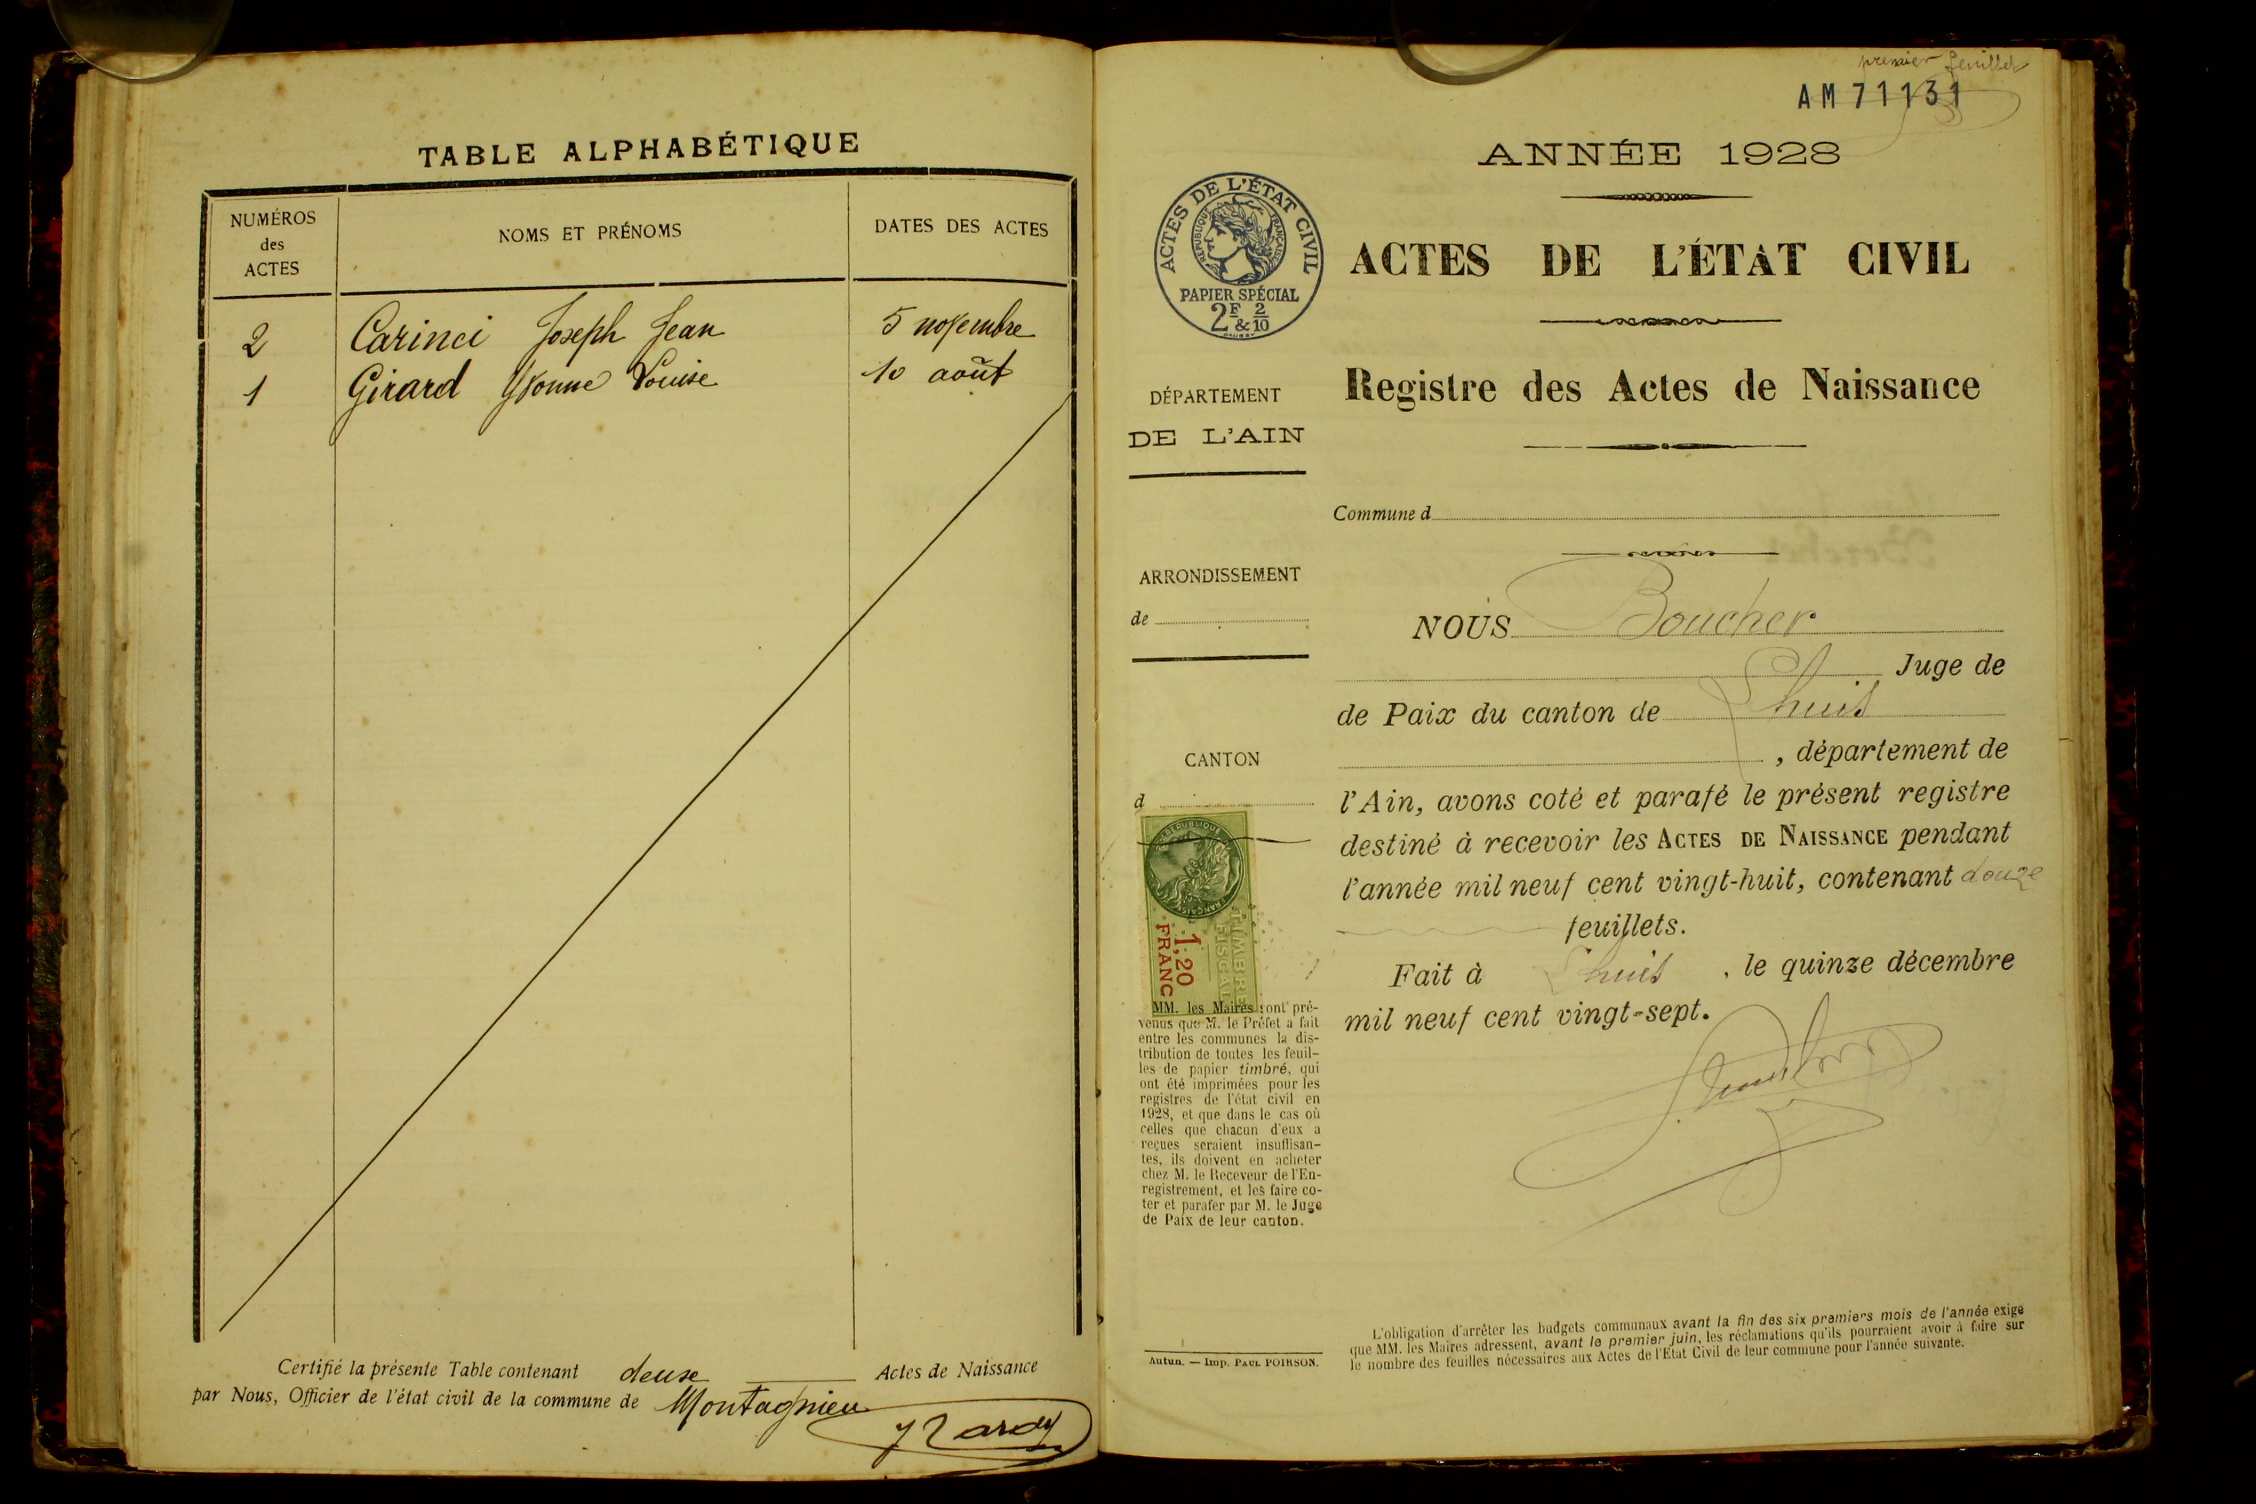 TABLE ALPHABÉTIQUE
NUMÉROS
des
ACTES
NOMS ET PRÉNOMS
DATES DES ACTES
2 Carinci Joseph Jean 5 novembre
1 Girard Yvonne Louise 10 août
Certifié la présente Table contenant deux Actes de Naissance
par Nous, Officier de l'état civil de la commune de Montagnieu
premier feuillet
AM 71131
ANNÉE 1928
ACTES DE L'ÉTAT CIVIL
RÉPUBLIQUE FRANÇAISE
PAPIER SPÉCIAL
2F & 2/10
ACTES DE L'ÉTAT CIVIL
Registre des Actes de Naissance
DÉPARTEMENT
DE L'AIN
Commune d
ARRONDISSEMENT
de
CANTON
d
NOUS Boucher
Juge de
de Paix du canton de Lhuis
, département de
l'Ain, avons coté et parafé le présent registre
destiné à recevoir les ACTES DE NAISSANCE pendant
l'année mil neuf cent vingt-huit, contenant douze
feuillets.
Fait à Lhuis, le quinze décembre
mil neuf cent vingt-sept.
RÉPUBLIQUE FRANÇAISE
TIMBRE
FISCAL
1,20
FRANC
MM. les Maires sont pré-
venus que M. le Préfet a fait
entre les communes la dis-
tribution de toutes les feuil-
les de papier timbré, qui
ont été imprimées pour les
registres de l'état civil en
1928, et que dans le cas où
celles que chacun d'eux a
reçues seraient insuffisan-
tes, ils doivent en acheter
chez M. le Receveur de l'En-
registrement, et les faire co-
ter et parafer par M. le Juge
de Paix de leur canton.
Autun. — Imp. PAUL POIRSON.
L'obligation d'arrêter les budgets communaux avant la fin des six premiers mois de l'année exige
que MM. les Maires adressent, avant le premier juin, les réclamations qu'ils pourraient avoir à faire sur
le nombre des feuilles nécessaires aux Actes de l'Etat Civil de leur commune pour l'année suivante.